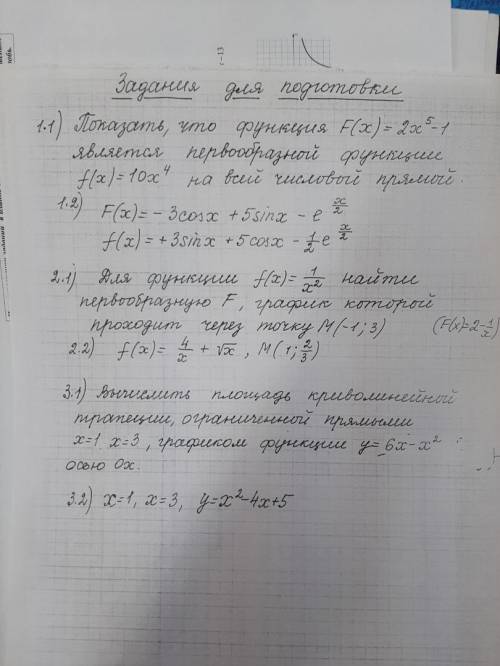 Задания для подготовки
1.1) Показать, что функция F(x) = 2x⁵-1
является первообразной функции
f(x)=10x⁴ на всей числовой прямой.
1.2) F(x)= - 3cosx + 5sinx - e^(x/2)
f(x)= +3sinx + 5cosx - 1/2 e^(x/2)
2.1) Для функции f(x)= 1/x² найти
первообразную F, график которой
проходит через точку M(-1; 3) (F(x)=2-1/x)
2.2) f(x)= 4/x + √x, M(1; 2/3)
3.1) Вычислить площадь криволинейной
трапеции, ограниченной прямыми
x=1 x=3, графиком функции y= 6x-x²
осью Ox.
3.2) x=1, x=3, y=x²-4x+5